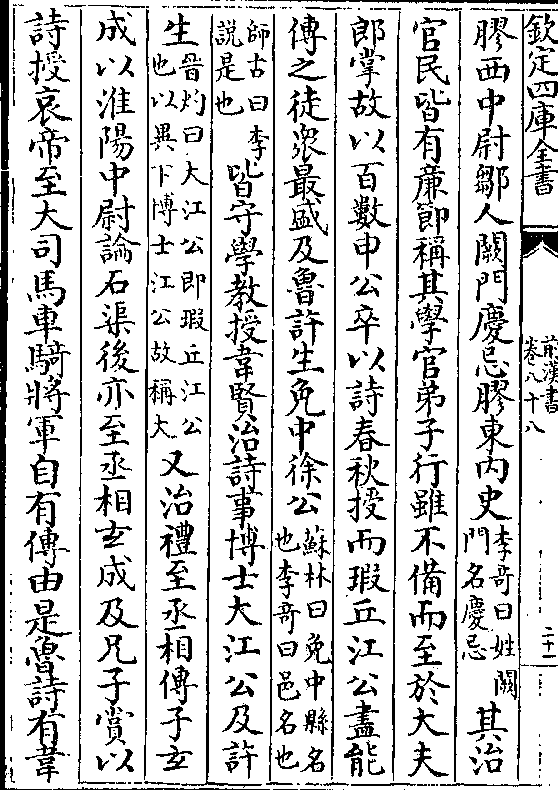 欽定四庫全書
前漢書
卷八十八
二十一
膠西中尉鄒人闕門慶忌膠東内史李奇曰姓闕門名慶忌其治
官民皆有亷節稱其學官弟子行雖不備而至於大夫
郎掌故以百數申公卒以詩春秋授而瑕丘江公盡能
傳之徒衆最盛及魯許生免中徐公蘇林曰免中縣名也李奇曰邑名也
師古曰李說是也皆守學教授韋賢治詩事博士大江公及許
生晉灼曰大江公即瑕丘江公也以異下博士江公故稱大又治禮至丞相傳子玄
成以淮陽中尉論石渠後亦至丞相玄成及兄子賞以
詩授哀帝至大司馬車騎將軍自有傳由是魯詩有韋